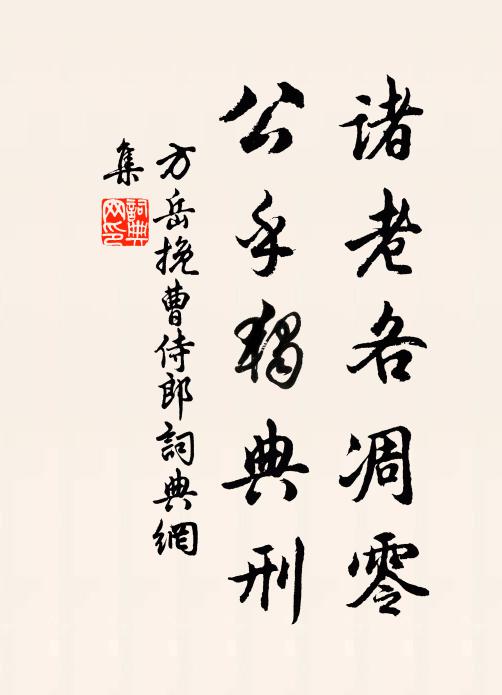 诸老各凋零
公乎独典刑
方岳挽曹侍郎詞典網
集
詞典
网印